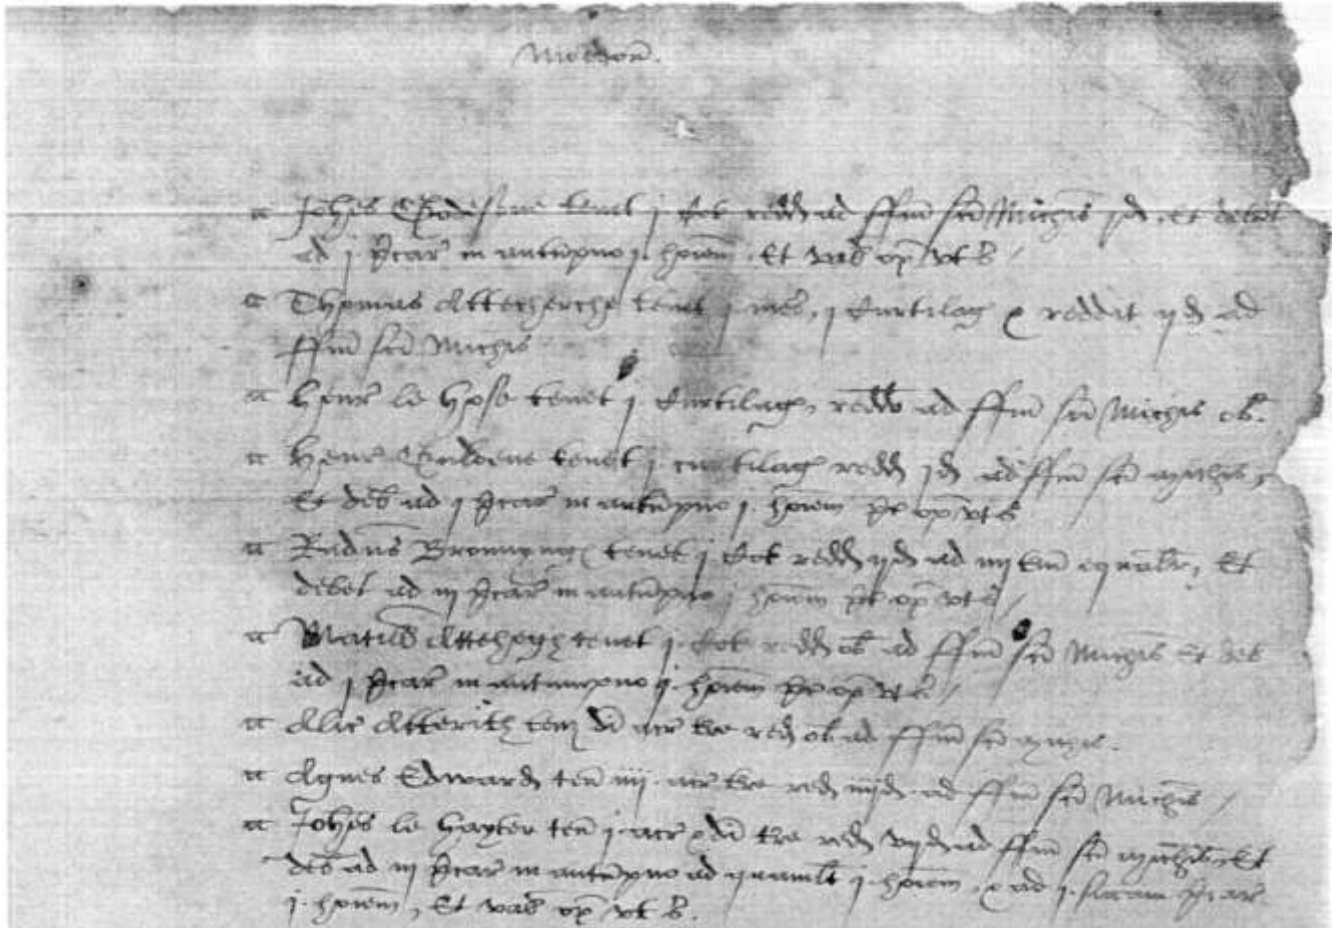 Johes Godesone tenet j Cot redd ad ffm sci Michis jd. Et debet
ad j p'car in autumpno j. hoiem. Et val op ut s
Thomas Attecherche tenet j mes, j Curtilag & reddit ijd ad
ffm sci Michis
Henr le Hose tenet j Curtilag, redd ad ffm sci Michis ob.
Henr tenet j curtilag redd jd ad ffm sci Michis,
Et deb ad j p'car in autumpno j. hoiem p'c op ut s
Radus tenet j Cot redd ijd ad iiij tm equalr, Et
debet ad iij p'car in autumpno j hoiem p'c op ut s
Attehegh tenet j Cot redd ob ad ffm sci Michis Et deb
ad j p'car in autumpno j. hoiem p'c op ut s
Alic Atterith ten di acr tre red ob ad ffm sci Michis.
Agnes Edward ten iiij acr tre red iiijd ad ffm sci Michis
Johes le Hayter ten j acr & di tre red vijd ad ffm sci Michis, Et
deb ad iij p'car in autumpno ad j. hoiem, & ad j.
j. hoiem, Et val op ut s.